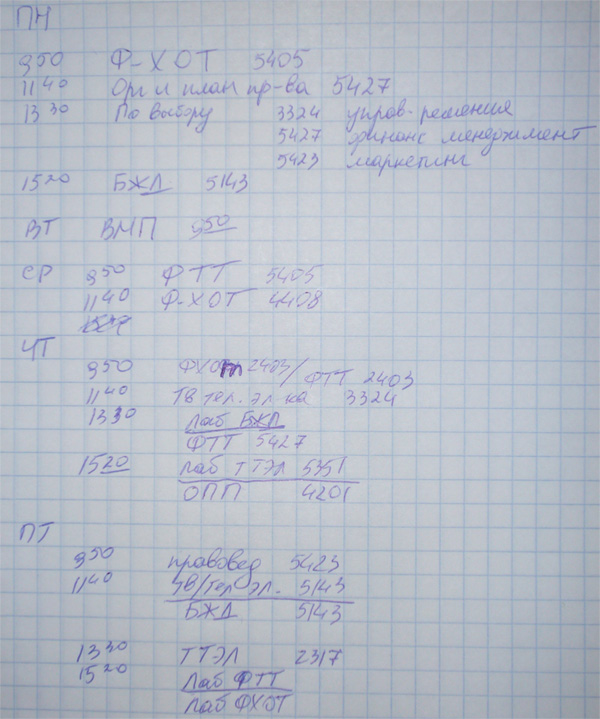 ПН
9⁵⁰ Ф-ХОТ 5405
11⁴⁰ Орг и план пр-ва 5427
13³⁰ По выбору 3324 управ. решения
5427 финанс менеджмент
5423 маркетинг
15²⁰ БЖД 5143
ВТ ВМП 9⁵⁰
СР 9⁵⁰ ФТТ 5405
11⁴⁰ Ф-ХОТ 4408
ЧТ
9⁵⁰ ФХОТ 2403/ФТТ 2403
11⁴⁰ ТВ тел. эл-ка 3324
13³⁰ Лаб БЖД
ФТТ 5427
15²⁰ Лаб ТТЭЛ 5351
ОПП 4201
ПТ
9⁵⁰ правовед 5423
11⁴⁰ ТВ/тел эл. 5143
БЖД 5143
13³⁰ ТТЭЛ 2317
15²⁰ Лаб ФТТ
Лаб ФХОТ